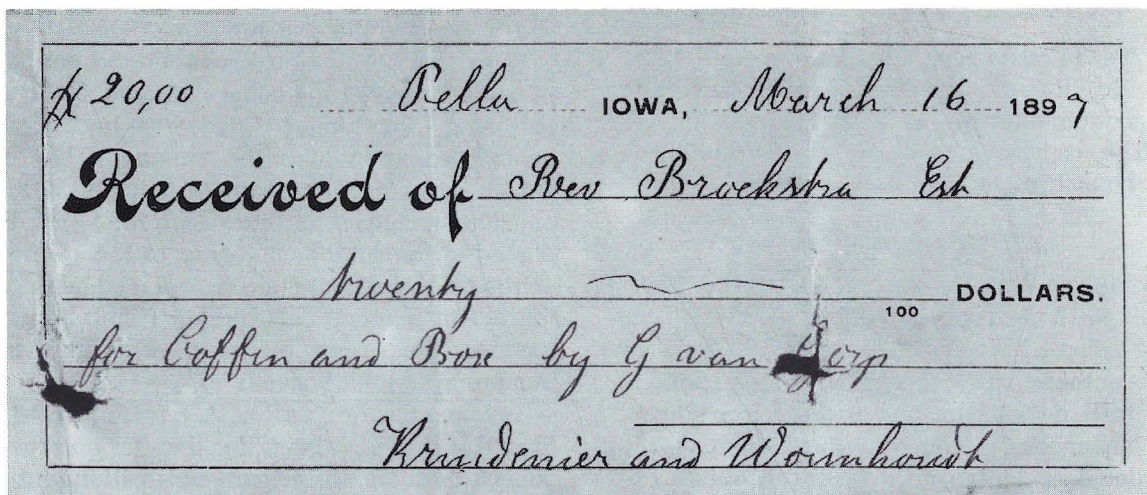 $20,00 Pella IOWA, March 16 1897
Received of Rev Broekstra Est
twenty DOLLARS.
100
for Coffin and Box by G van Gorp
Kruidenier and Wormhoudt